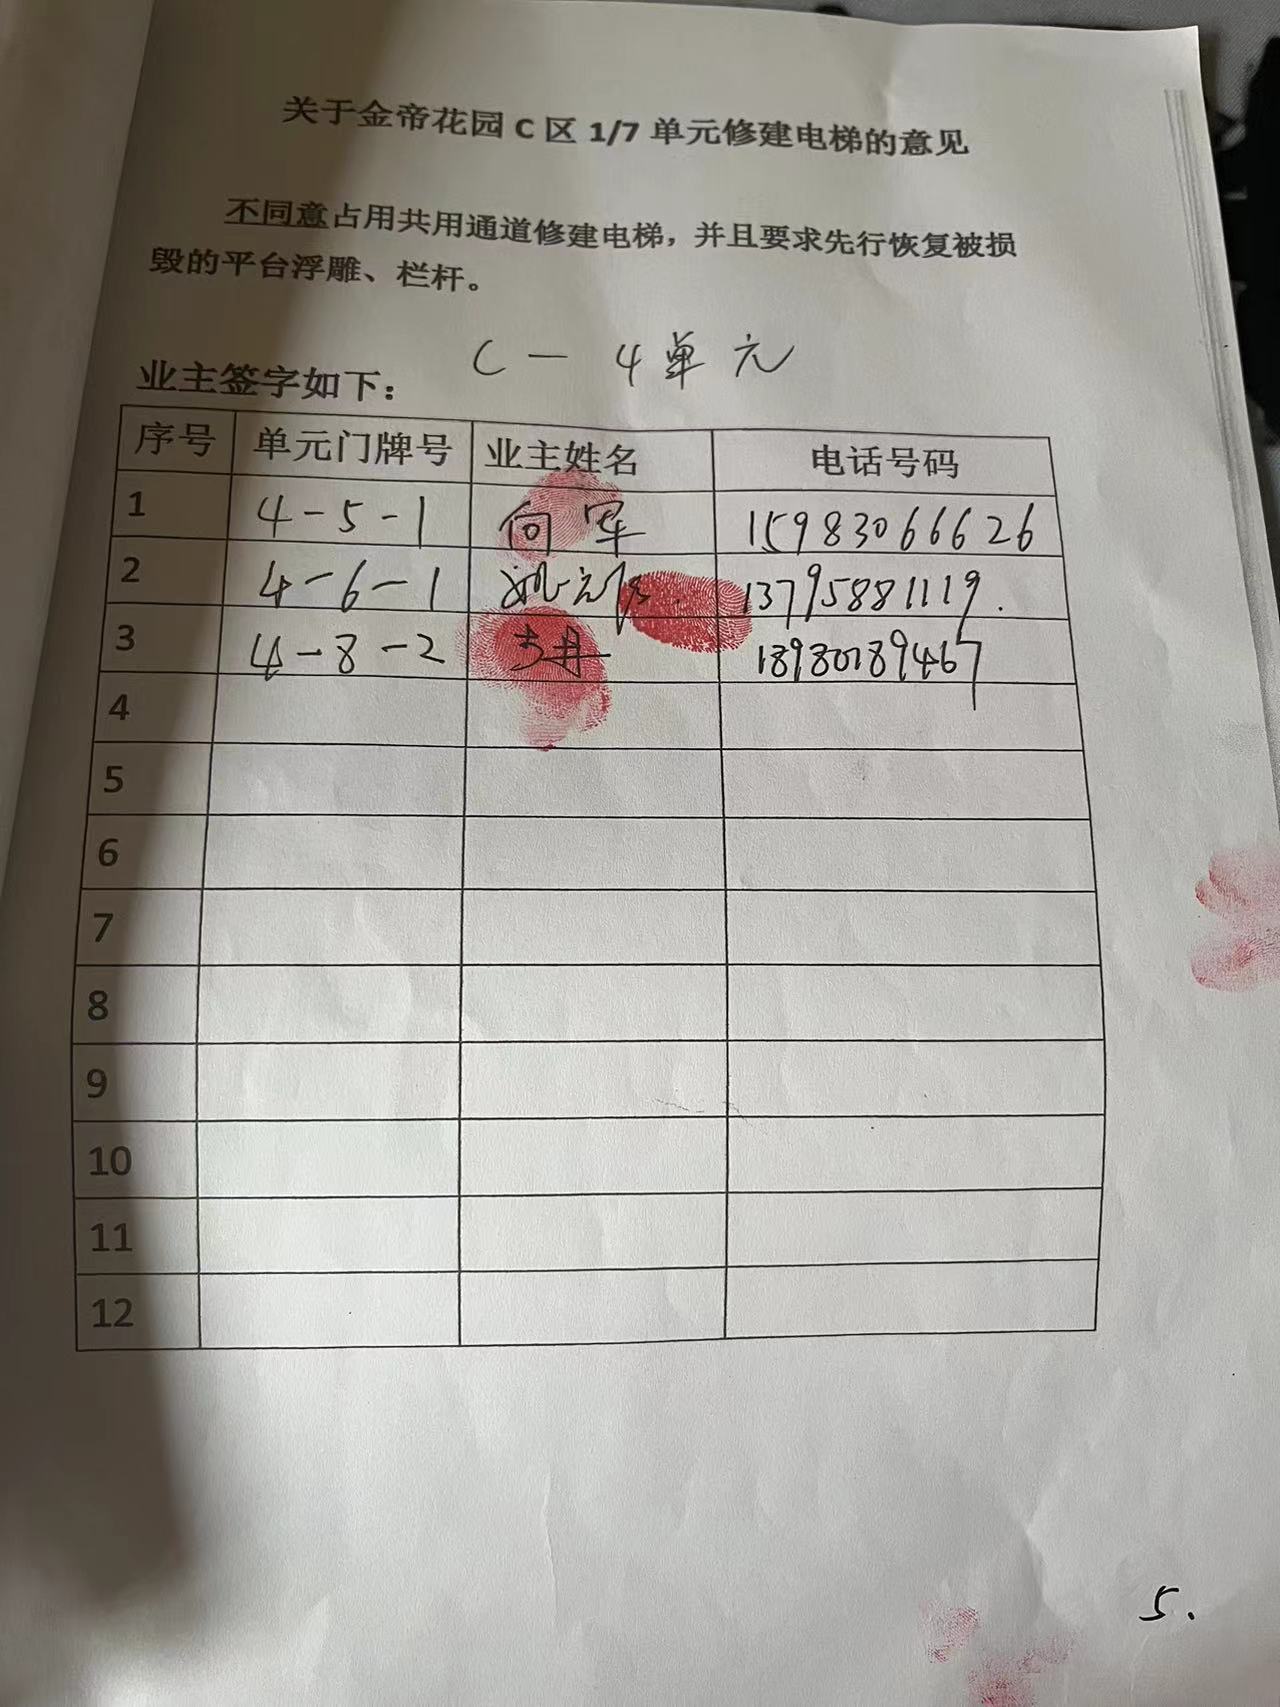 关于金帝花园 C 区 1/7 单元修建电梯的意见
不同意占用共用通道修建电梯，并且要求先行恢复被损
毁的平台浮雕、栏杆。
C — 4单元
业主签字如下：
序号 单元门牌号 业主姓名 电话号码
1 4-5-1 向军 15983066626
2 4-6-1 13795881119.
3 4-8-2 18980189467
4
5
6
7
8
9
10
11
12
5.